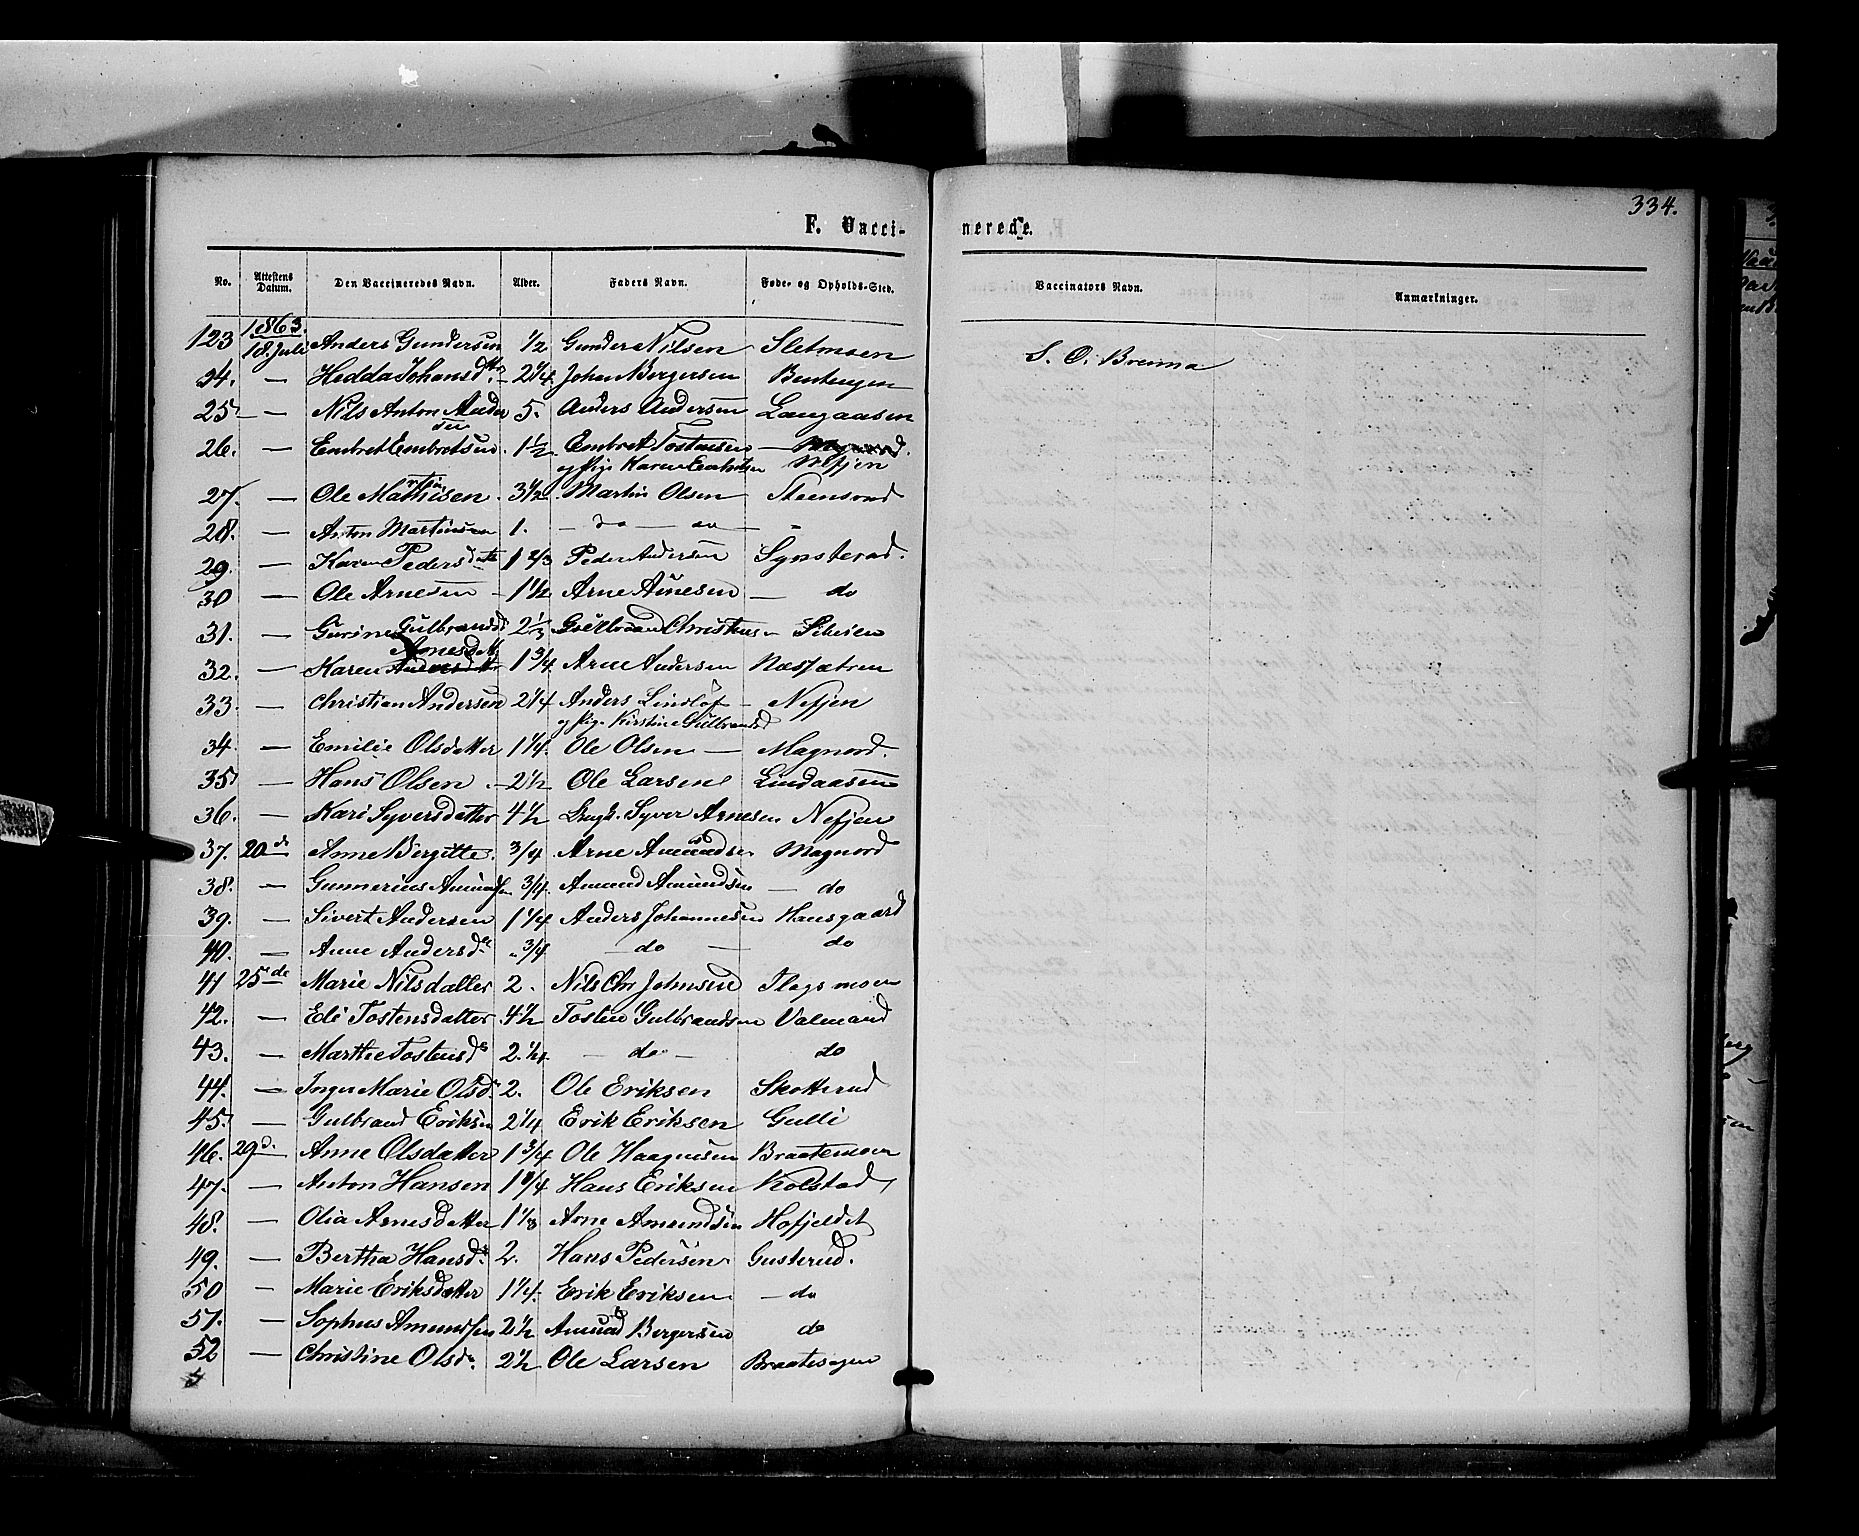 334.
F. Vacci-
nerede.
No. Attestens Datum. Den Vaccineredes Navn. Alder. Faders Navn. Føde- og Opholds-Sted. Vaccinators Navn. Anmærkninger.
1863.
123 18. Juli Anders Gundersen 1/2 Gunder Nilsen Sletmoen S. O. Brenna
24. — Hedda Johansd 2 1/4 Johan Bergersen
25 — Nils Anton Andersen 5. Anders Andersen Langaasen
26. — Embret Embretsen 1 1/2 Embret Tostensen — Magnord.
og Pige Karen Nefjen
27. — Ole Martinsen 3 1/2 Martin Olsen Steensrud
28. — Anton Martinsen 1. — do — "
29. — Karen Pedersdatter 1 2/3 Peder Andersen Synsterud.
30 — Ole Arnesen — 1 1/2 Arne Arnesen — do
31. — Gurine Gulbrandsd 2 1/3 Gulbrand Christians
Arnesdtr
32. — Karen Andersdtr 1 3/4 Arne Andersen Næssætren
33 — Christian Andersen 2 1/4 Anders Lindlöf — Nefjen
og Pige Kirstine Gulbrandsd
34. — Emilie Olsdatter 1 1/4. Ole Olsen — Magnord.
35 — Hans Olsen. 2 1/2 Ole Larsen Lindaasen
36. — Kari Syversdatter 4 1/2 Syver Arnesen Nefjen
37. 20de Anne Bergitte. 3/4 Arne Amundsen Magnord
38. — Gunnerius Amundsen 3/4. Amund Amundsen — do
39. — Sivert Andersen 1 1/4 Anders Johannesen Hansgaard
40. — Anne Andersd. 3/4 do — do
41 25de Marie Nilsdatter 2. Nils Chr Johnsen Flagsmoen
42. — Eli Tostensdatter 4 1/2 Tosten Gulbrandsen
43. — Marthe Tostensd 2. 1/4. — do — do
44. — Inger Marie Olsd. 2. Ole Eriksen Skotterud
45. — Gulbrand Eriksen 2 1/4 Erik Eriksen Gulli
46. 29d. Anne Olsdatter 1 3/4 Ole Haagensen Braatemoen
47. — Anton Hansen 1 1/4 Hans Eriksen Kolstad
48. — Olia Arnesdatter 1 1/3 Arne Amundsen Hofjeldet
49. — Bertha Hansd. 2. Hans Pedersen Gusterud.
50 — Marie Eriksdatter 1 1/4. Erik Eriksen — do
51. — Sophus Amundsen 2 1/2 Amund Bergersen do
52 — Christine Olsd. 2 1/2 Ole Larsen